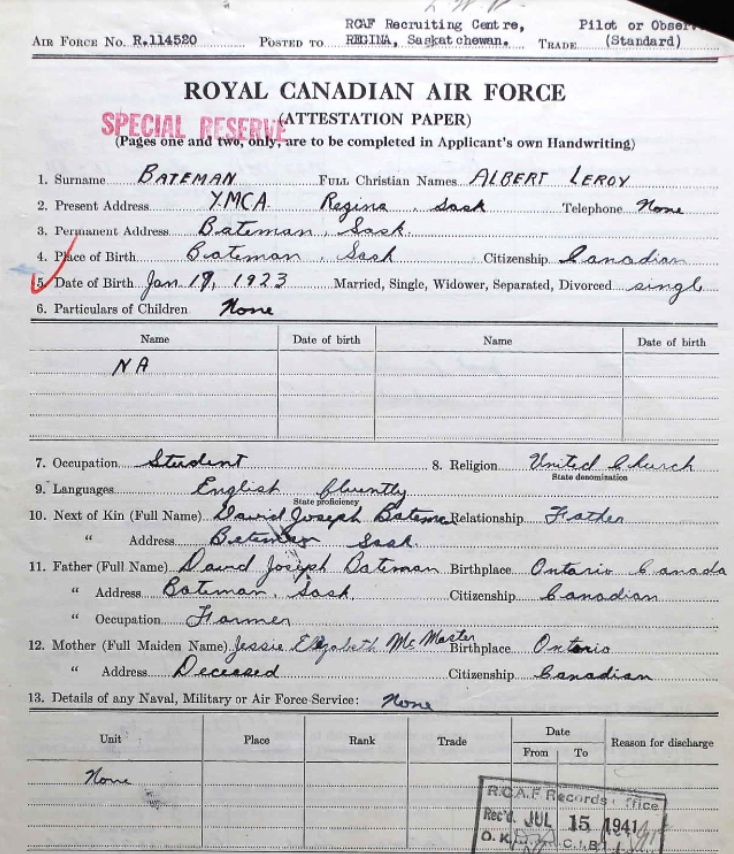 RCAF Recruiting Centre, Pilot or Obser
AIR FORCE NO. R.114520 POSTED TO REGINA, Saskatchewan. TRADE (Standard)
ROYAL CANADIAN AIR FORCE
(ATTESTATION PAPER)
SPECIAL RESERVE
(Pages one and two, only, are to be completed in Applicant's own Handwriting)
1. Surname BATEMAN FULL Christian Names ALBERT LEROY
2. Present Address YMCA. Regina, Sask Telephone None
3. Permanent Address Bateman, Sask.
4. Place of Birth Bateman, Sask Citizenship Canadian
5. Date of Birth Jan 1, 1923 Married, Single, Widower, Separated, Divorced singl
6. Particulars of Children None
Name Date of birth Name Date of birth
NA
7. Occupation Student 8. Religion United Church
State denomination
9. Languages English fluently
State proficiency
10. Next of Kin (Full Name) David Joseph Batema Relationship Father
" Address Bateman Sask.
11. Father (Full Name) David Joseph Bateman Birthplace Ontario Canada
" Address Bateman, Sask. Citizenship Canadian
" Occupation Farmer
12. Mother (Full Maiden Name) Jessie Elizabeth McMaster Birthplace Ontario
" Address Deceased Citizenship Canadian
13. Details of any Naval, Military or Air Force Service: None
Unit Place Rank Trade Date Reason for discharge
From To
None
R.C.A.F Records Office
Rec'd. JUL 15 1941
O.K. C.I.B.